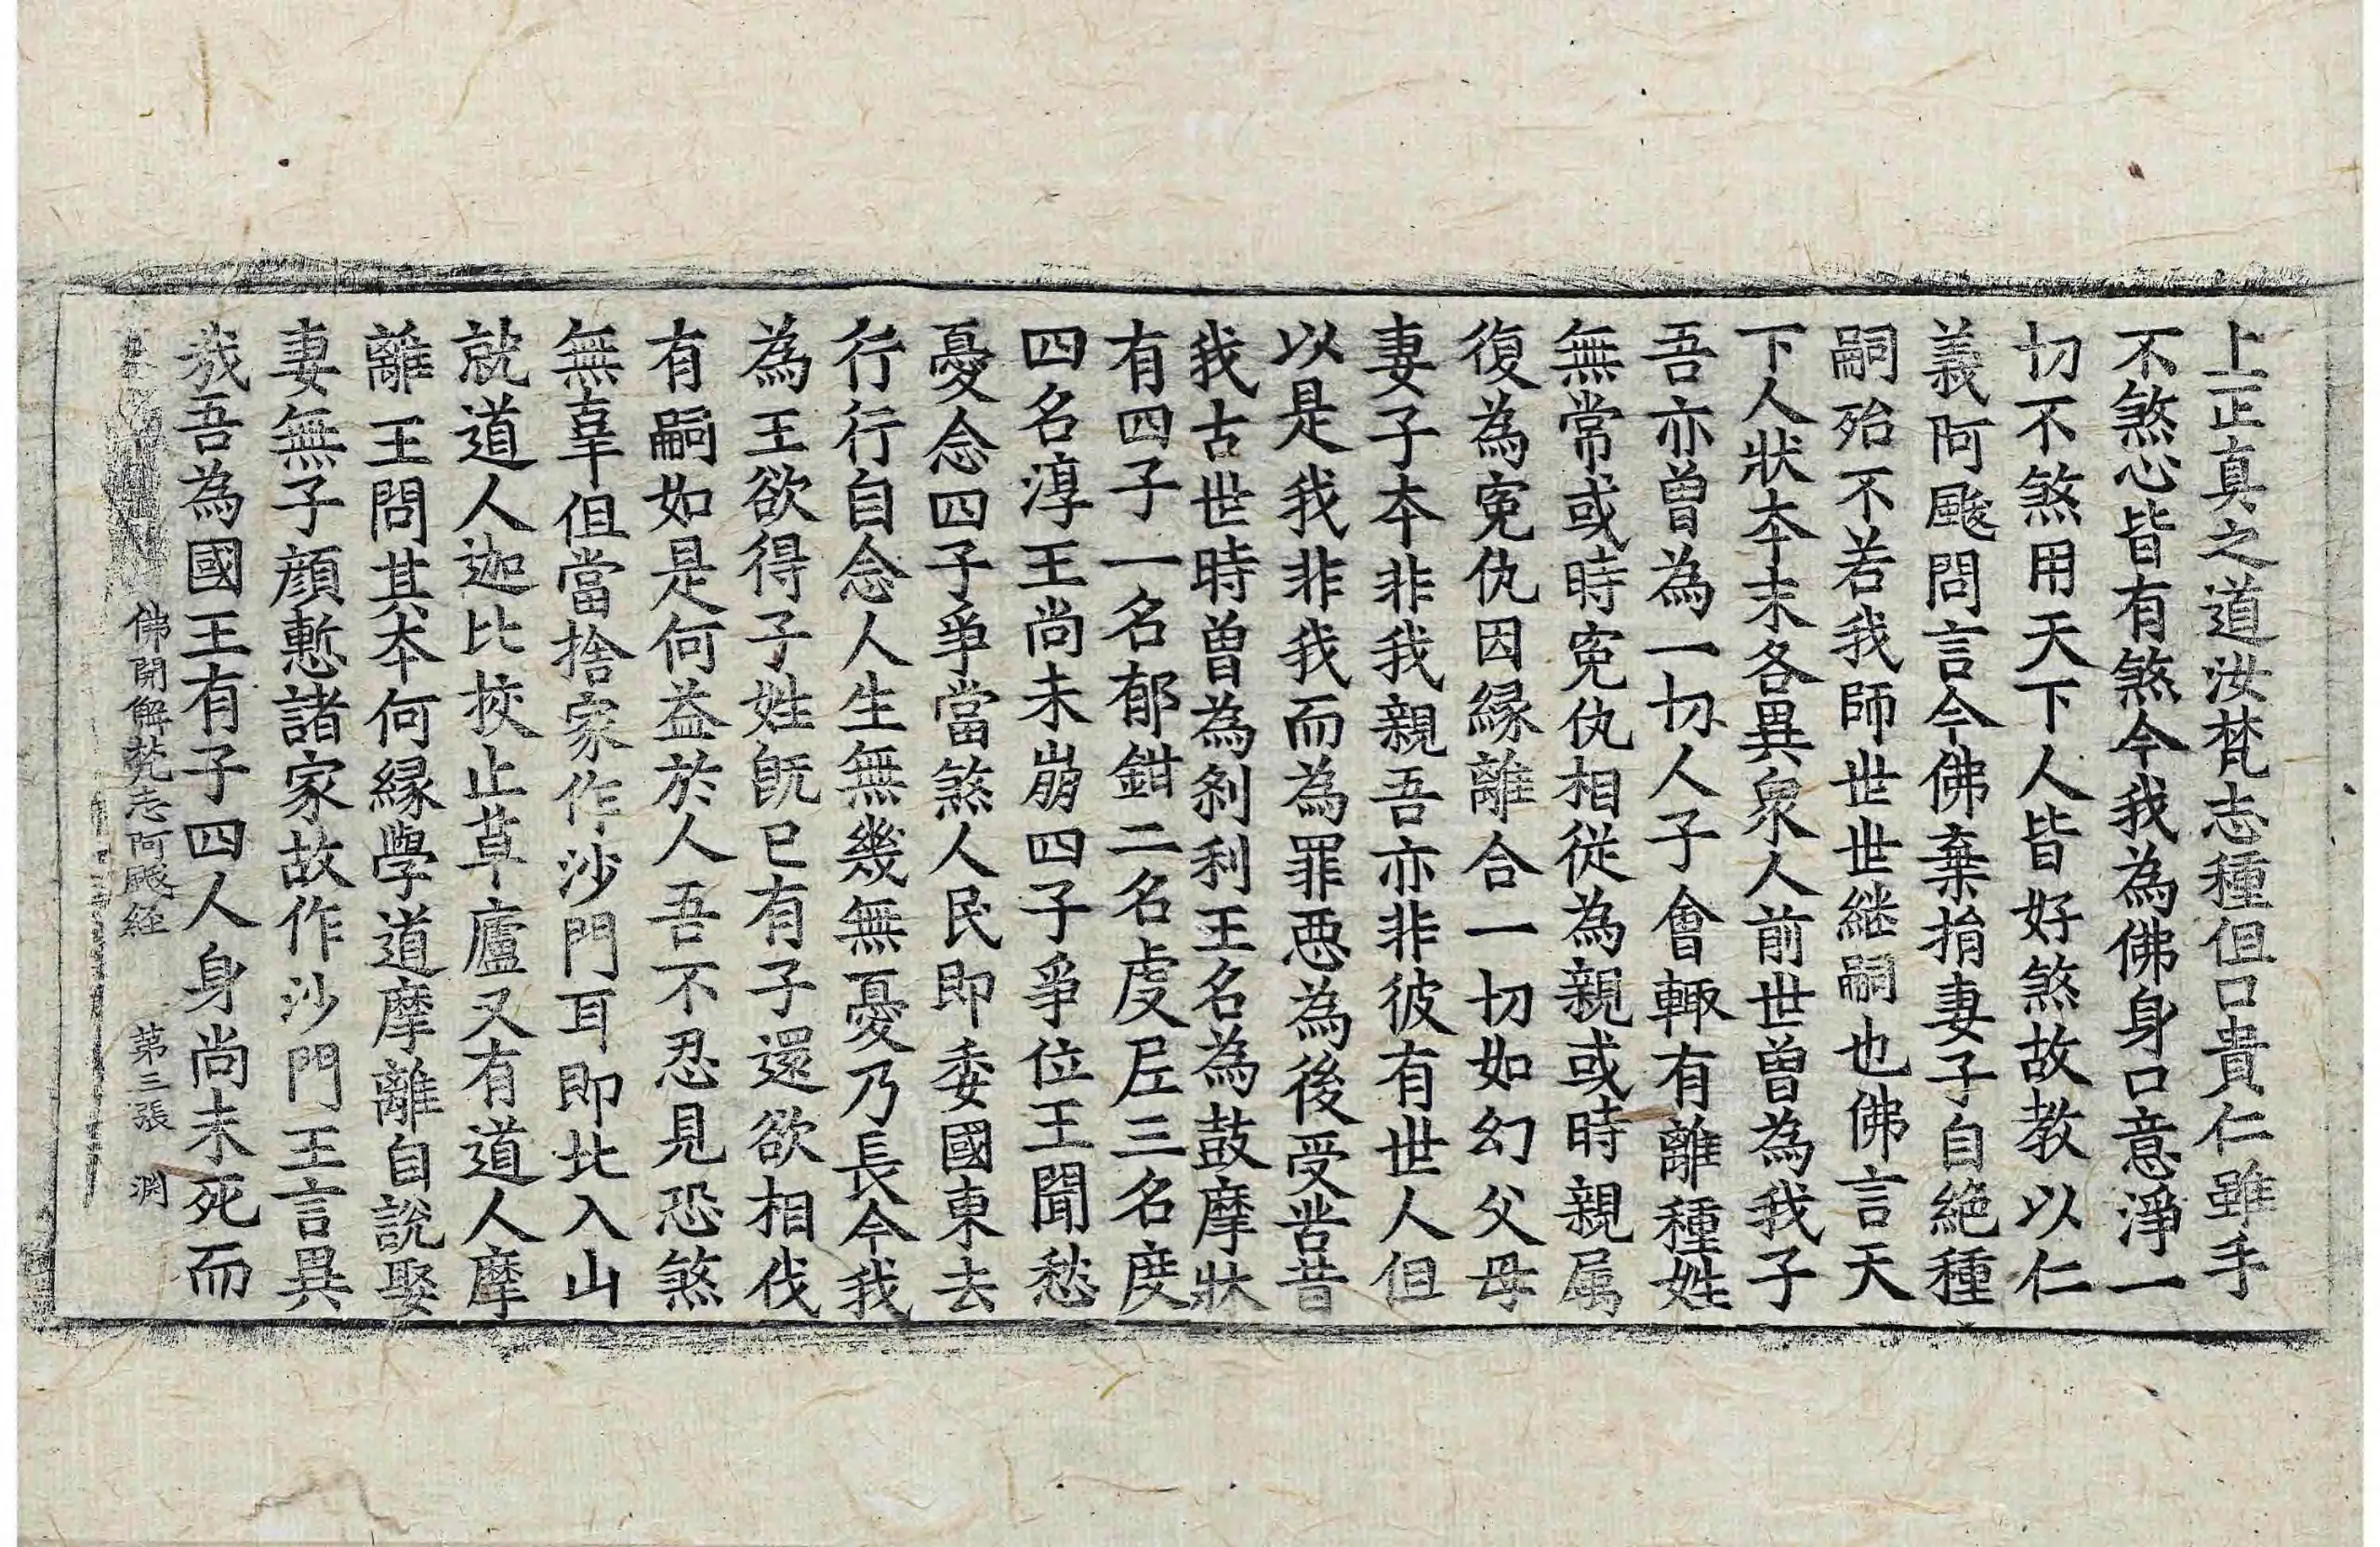 上正真之道汝梵志種但口貴仁雖手
不煞心皆有煞今我為佛身口意淨一
切不煞用天下人皆好煞故教以仁
義阿颰問言今佛棄捐妻子自絶種
嗣殆不若我師世世継嗣也佛言天
下人狀夲末各異衆人前世曽為我子
吾亦曽為一切人子會輙有離種姓
無常或時寃仇相從為親或時親属
復為寃仇因縁離合一切如幻父母
妻子夲非我親吾亦非彼有世人但
以是我非我而為罪惡為後受苦昔
我古世時曽為剎利王名為鼓摩狀
有四子一名郁鉗二名虔𡰱三名度
四名淳王尚未崩四子爭位王聞愁
憂念四子爭當煞人民即委國東去
行行自念人生無幾無憂乃長今我
為王欲得子姓旣已有子還欲相伐
有嗣如是何益於人吾不忍見恐煞
無辜但當捨家作沙門耳即北入山
就道人迦比挍止草廬又有道人摩
離王問其夲何縁學道摩離自說娶
妻無子顔慙諸家故作沙門王言異
㢤吾為國王有子四人身尚未死而
佛開解梵志阿颰経 第三張 渕